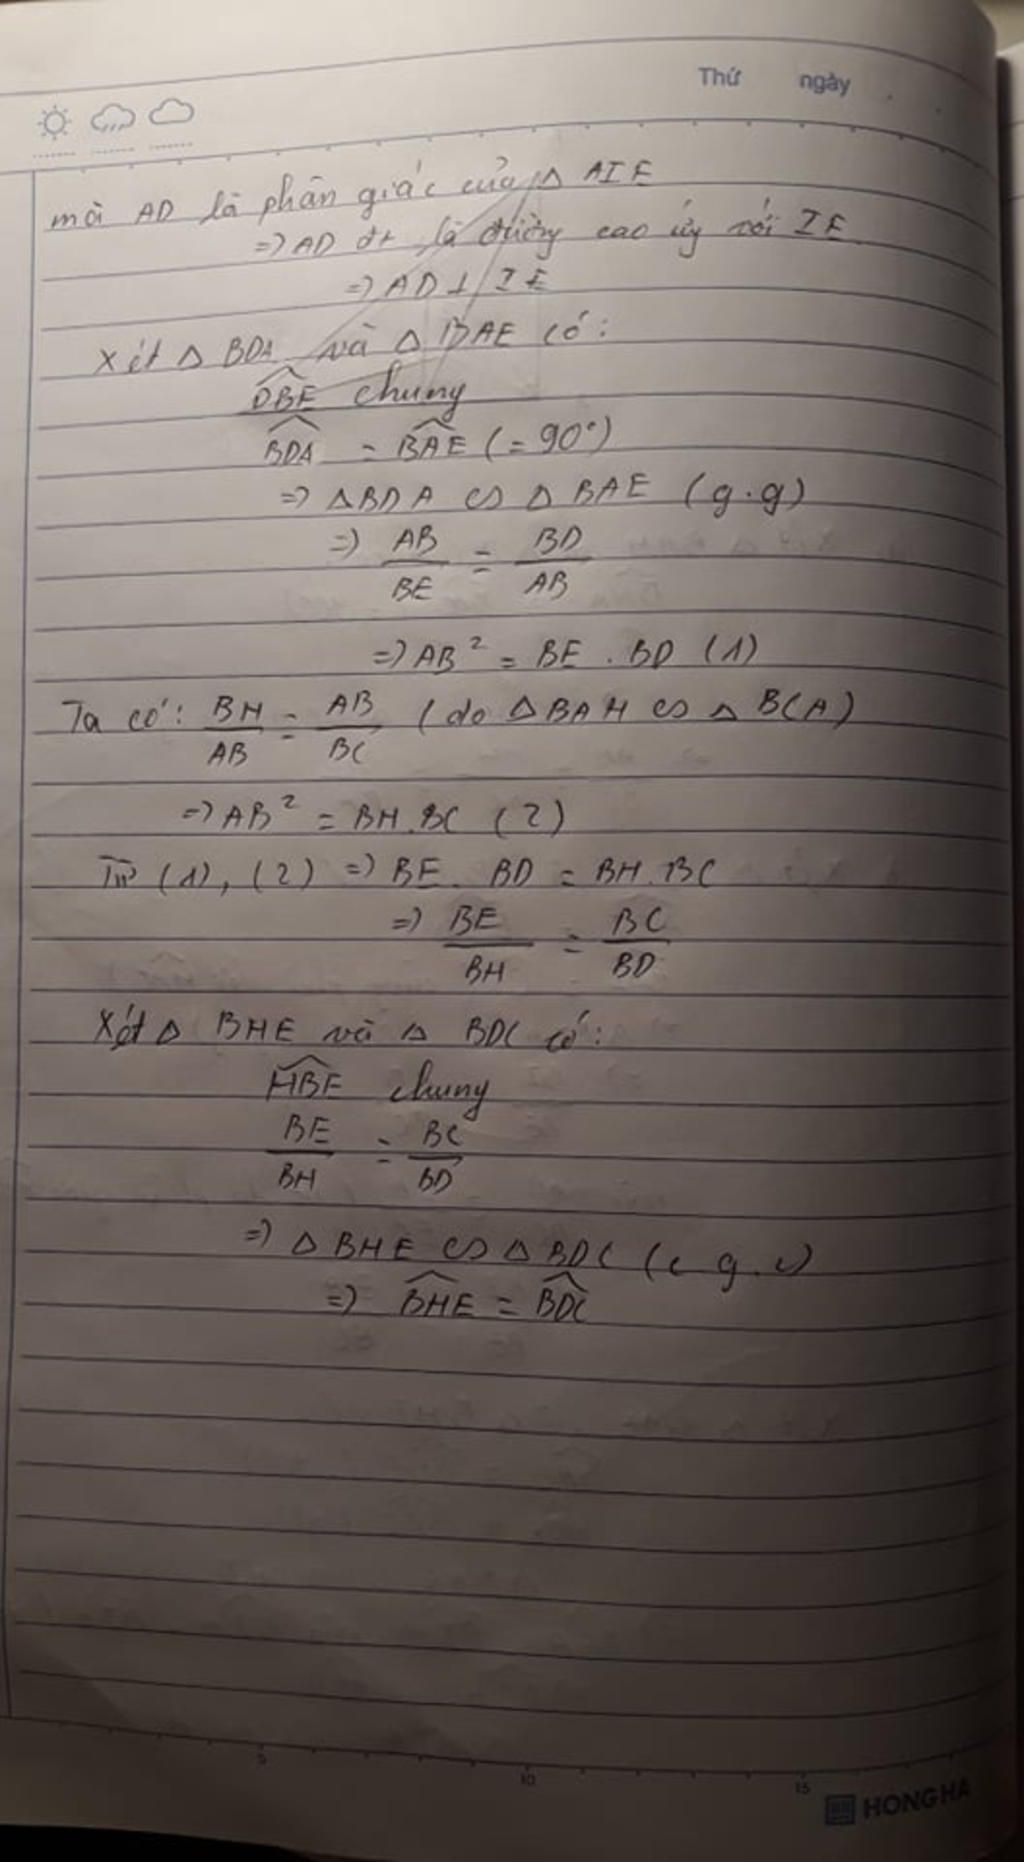 Thứ ngày
mà AD là phân giác của Δ AIE
=> AD đt là đường cao ứy với IE
=> AD ⊥ IE
Xét Δ BDA và Δ BAE có:
\widehat{DBE} chung
\widehat{BDA} = \widehat{BAE} (= 90°)
=> Δ BDA ∽ Δ BAE (g.g)
=> AB/BE = BD/AB
=> AB² = BE . BD (1)
Ta có: BH/AB = AB/BC (do Δ BAH ∽ Δ BCA)
=> AB² = BH.BC (2)
Từ (1), (2) => BE. BD = BH.BC
=> BE/BH = BC/BD
Xét Δ BHE và Δ BDC có:
\widehat{HBE} chung
BE/BH = BC/BD
=> Δ BHE ∽ Δ BDC (c g.c)
=> \widehat{BHE} = \widehat{BDC}
5 10 15
HONG HA